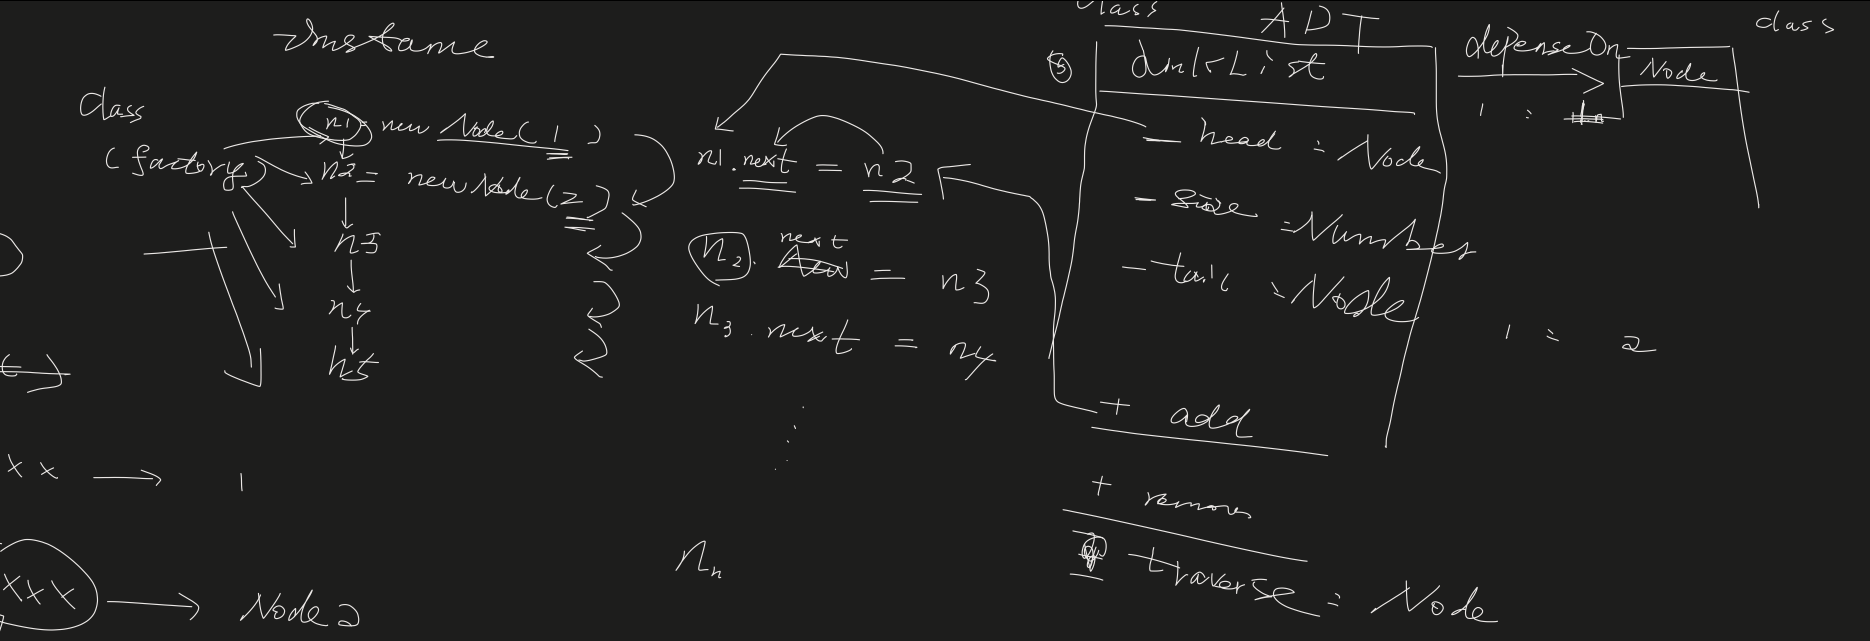 Instame
class
(factory)
n1 = new Node(1)
n2 = new Node(2)
n3
n4
n5
xx → 1
xxx → Node2
n1.next = n2
n2. next = n3
n3.next = n4
nn
class ADT
5
LinkList
- head : Node
- size : Number
- tail : Node
+ add
+ remove
traverse : Node
depenseOn
1 :
class
Node
1 : 2